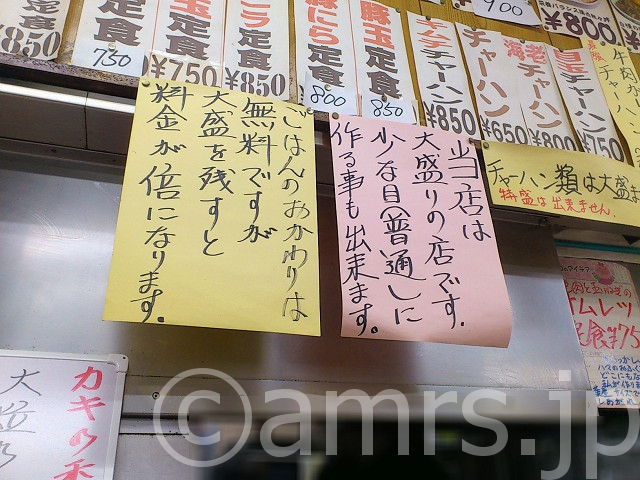 ¥850
定食
750
定食
¥750
ニラ定食
¥850
豚にら定食
800
豚玉定食
850
チャーハン
¥850
チャーハン
¥650
海老チャーハン
¥800
チャーハン
¥750
900
¥800
ごはんのおかわりは
無料ですが
大盛を残すと
料金が倍になります。
当店は
大盛りの店です.
少な目(普通)に
作る事も出来ます。
チャーハン類は大盛ま
特盛は出来ません。
オムレツ
定食¥75
カキフ
大粒
©amrs.jp